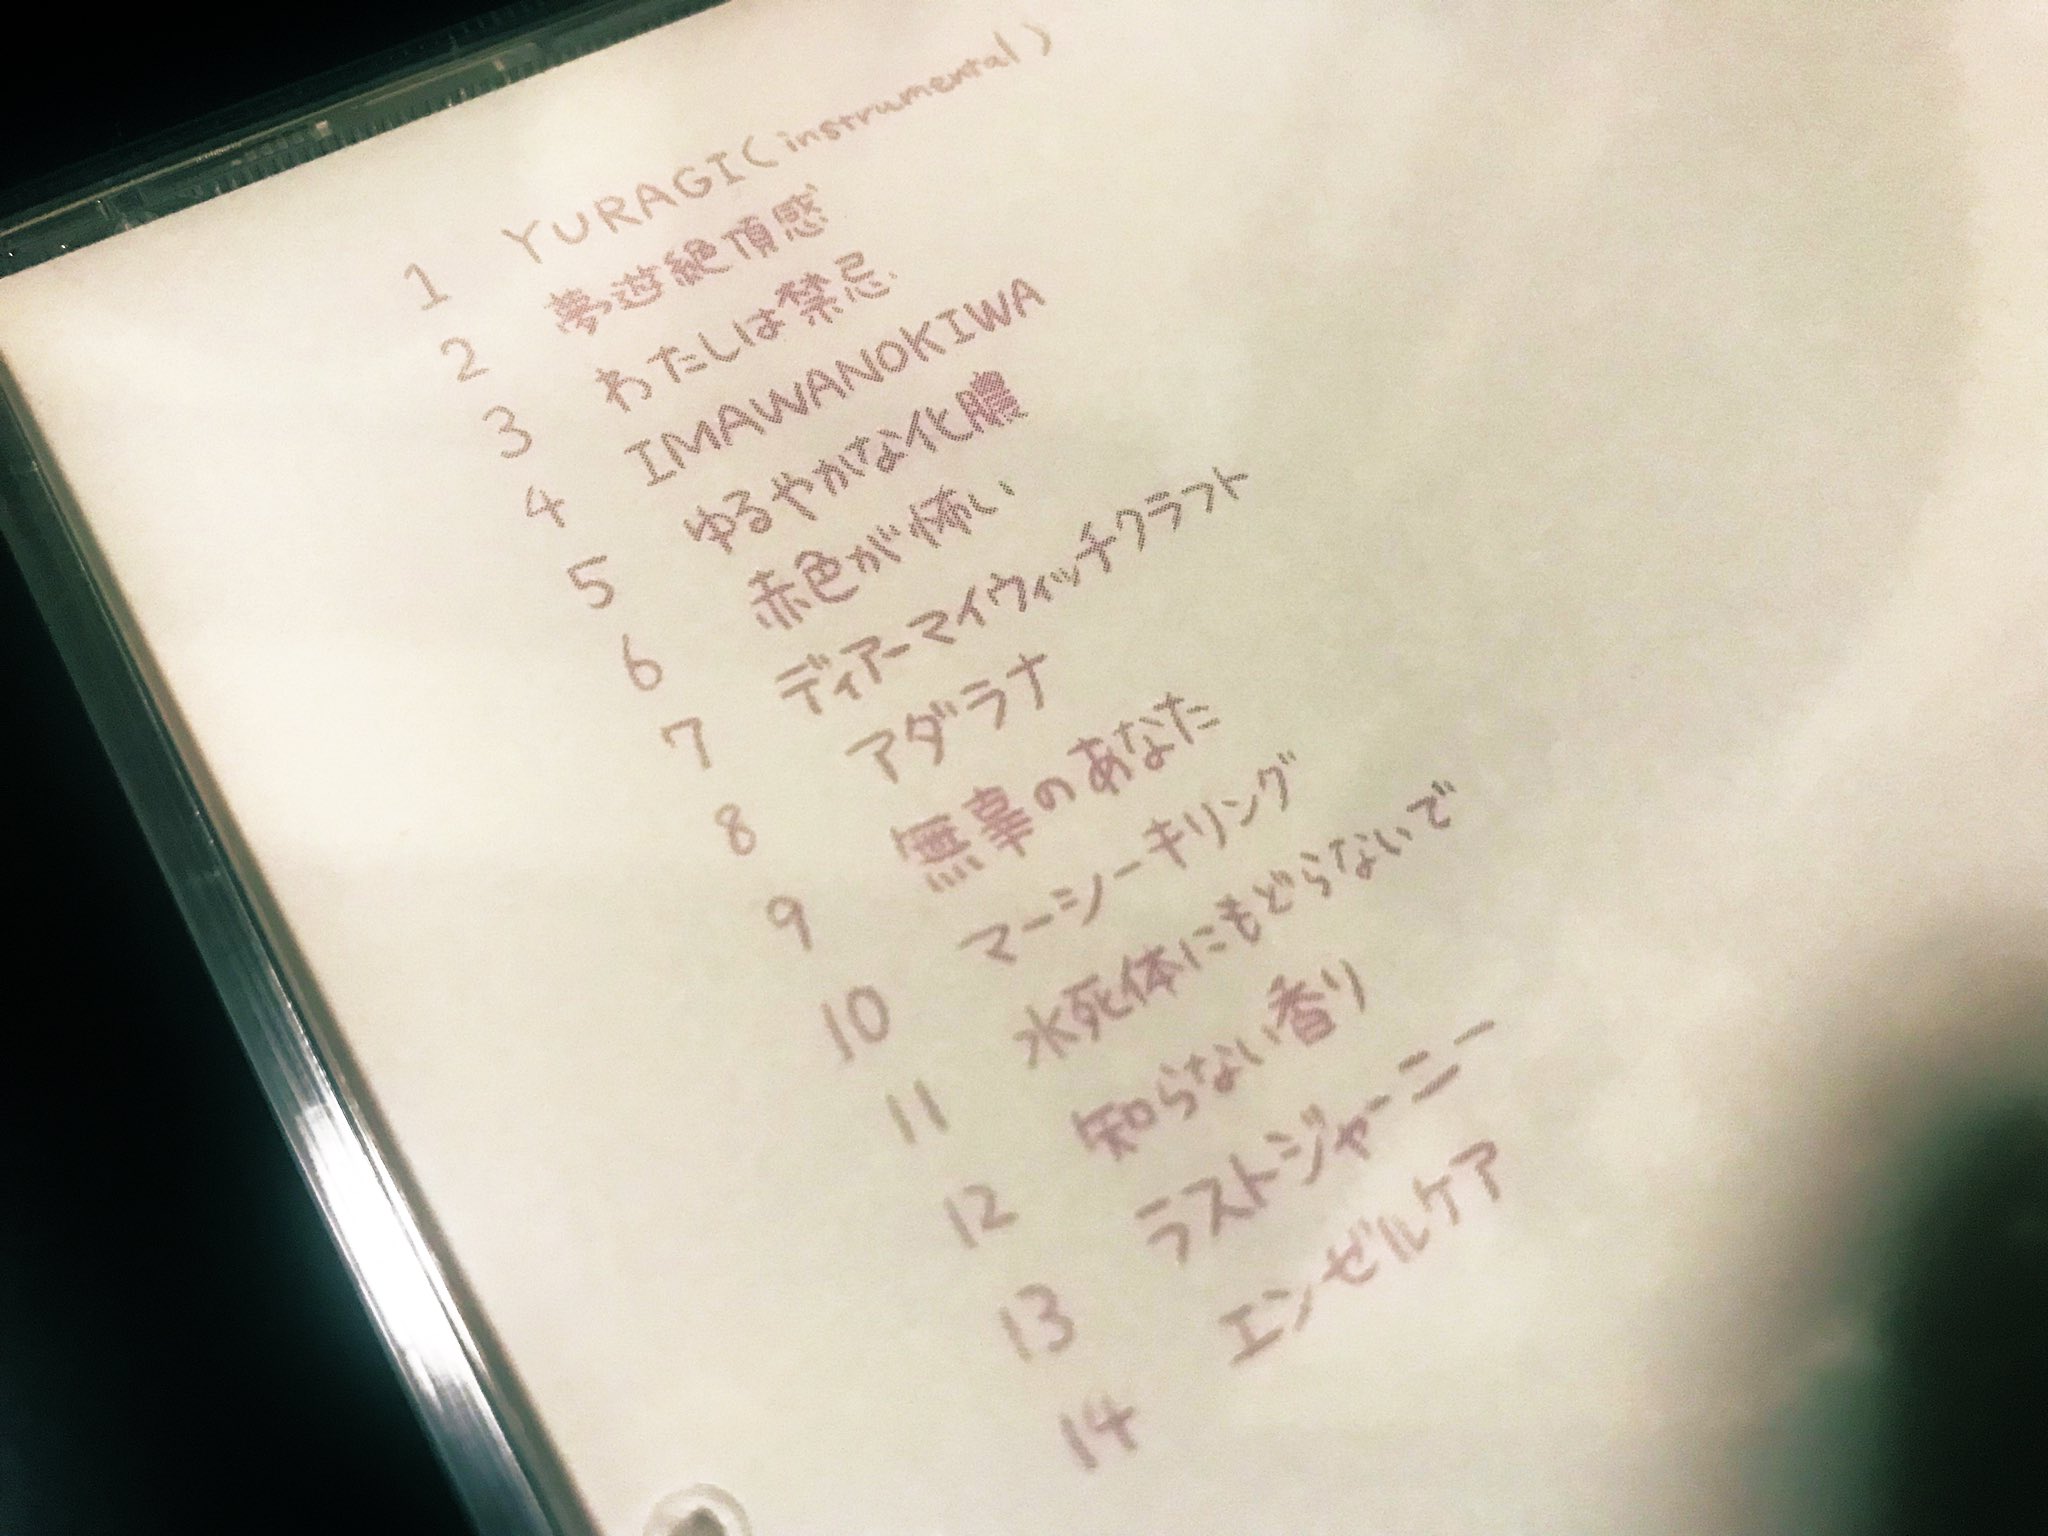 1 YURAGI(instrumental)
2 夢遊絶頂感
3 わたしは禁忌
4 IMAWANOKIWA
5 ゆるやかな化膿
6 赤色が怖い
7 ディアーマイウィッチクラフト
8 アダラナ
9 無辜のあなた
10 マーシーキリング
11 水死体にもどらないで
12 知らない香り
13 ラストジャーニー
14 エンゼルケア